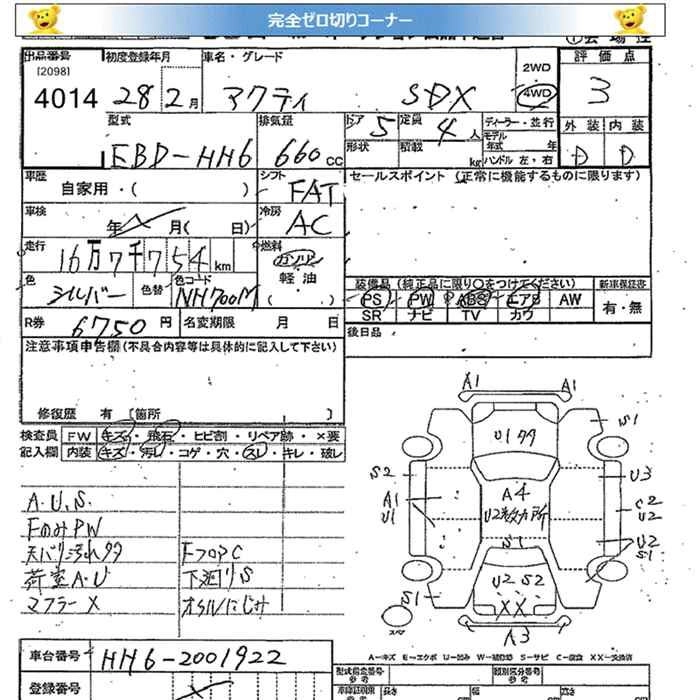 完全ゼロ切りコーナー
出品番号 初度登録年月 車名・グレード 2WD 評価点
[2098]
4014 28 2月 アクティ SDX 4WD 3
型式 排気量 ドア 5 定員 4人 ディーラー・並行 外装 内装
モデル年式 年式
EBD-HH6 660cc 形状 積載 kg ハンドル 左・右 D D
車歴 シフト セールスポイント (正常に機能するものに限ります)
自家用・( ) FAT
車検 冷房
年 月( 日) AC
走行 燃料
16万7千754km ガソリン
色 色替 色コード 軽油
シルバー NH700M ( )
装備品 (純正品に限り○をつけてください) 新車保証書
PS PW ABS エアB AW 有・無
SR ナビ TV カワ
R券 6750円 名変期限 月 日 後日品
注意事項申告欄(不具合内容等は具体的に記入して下さい)
修復歴 有 [箇所 ]
検査員 FW キズ・飛石・ヒビ割・リペア跡・×要
記入欄 内装 キズ・汚れ・コゲ・穴・スレ・キレ・破レ
A.U.S.
FのみPW
天バリ汚れタタ FフロアC
荷室A.U 下廻りS
マフラーX オイルにじみ
A1 A1
S1
U1タタ
S2 U3
A1 A4 C2
U1 U2数カ所 U2
S1 U2
S1
U2 S2
S1 XX
スペア A3
A-キズ E-エクボ U-凹み W-補修跡 S-サビ C-腐食 XX-交換済
車台番号 HH6-2001922
登録番号
型式指定番号 類別区分番号
参考 参考
長さ